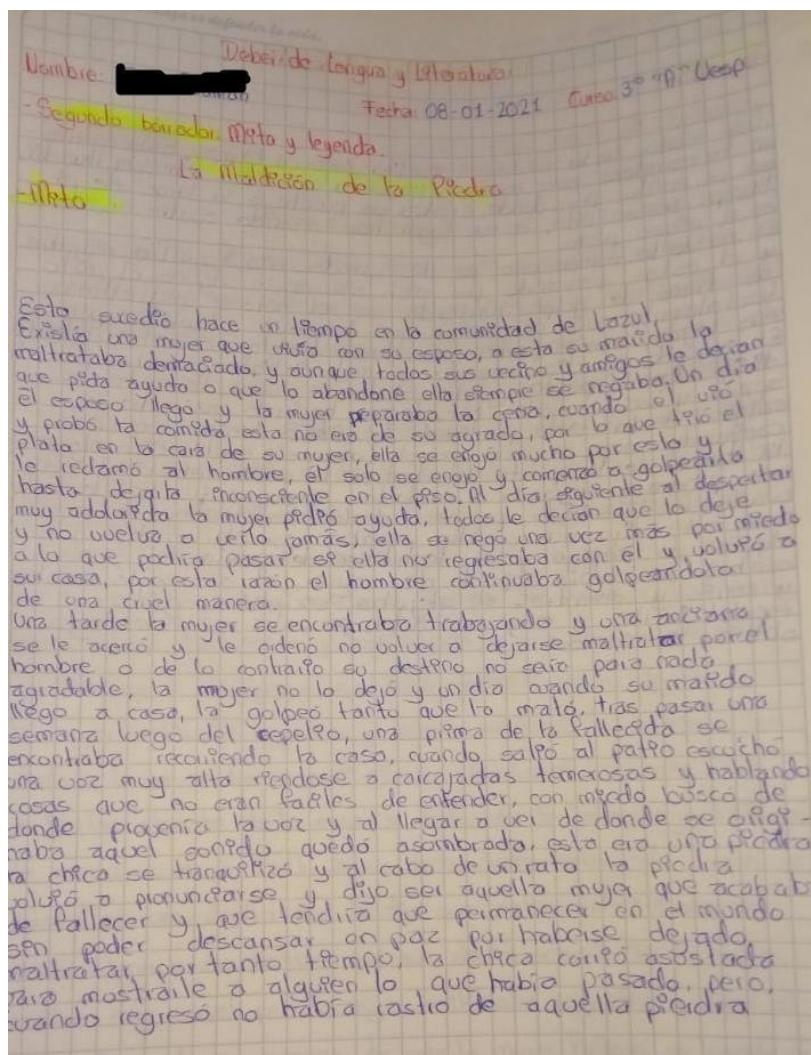 Deber de Lengua y Literatura
Nombre:
Fecha: 08-01-2021 Curso: 3° "A" Vesp
-Segundo borrador Mito y leyenda.
La Maldición de la Piedra
-Mito
Esto sucedio hace un tiempo en la comunidad de Lazul,
Existía una mujer que vivia con su esposo, a esta su marido la
maltrataba demaciado, y aunque todos sus vecino y amigos le decian
que pida ayuda o que lo abandone ella siempre se negaba. Un día
el esposo llego y la mujer preparaba la cena, cuando el vió
y probó la comida, esta no era de su agrado, por lo que tiró el
plato en la cara de su mujer, ella se enojó mucho por esto y
le reclamó al hombre, él solo se enojo y comenzó a golpearla
hasta dejarla inconsciente en el piso. Al día siguiente al despertar
muy adolorida la mujer pidió ayuda, todos le decian que lo deje
y no vuelva a verlo jamás, ella se negó una vez más por miedo
a lo que podría pasar si ella no regresaba con el y volvió a
su casa, por esta razón el hombre continuaba golpeandola
de una cruel manera.
Una tarde la mujer se encontraba trabajando y una anciana
se le acercó y le ordenó no volver a dejarse maltratar por el
hombre o de lo contrario su destino no seria para nada
agradable, la mujer no lo dejó y un dia cuando su marido
llego a casa, la golpeó tanto que la mató, tras pasar una
semana luego del sepelio, una prima de la fallecida se
encontraba recorriendo la casa, cuando salió al patio escuchó
una voz muy alta riendose a carcajadas temerosas y hablando
cosas que no eran faciles de entender, con miedo buscó de
donde provenia la voz y al llegar a ver de donde se origi-
naba aquel sonido quedó asombrada, esta era una piedra
la chica se tranquilizó y al cabo de un rato la piedra
volvió a pronunciarse y dijo ser aquella mujer que acabab
de fallecer y que tendría que permanecer en el mundo
sin poder descansar en paz por haberse dejado
maltratar por tanto tiempo, la chica corrió asustada
para mostrarle a alguien lo que habia pasado, pero,
cuando regresó no había rastro de aquella piedra